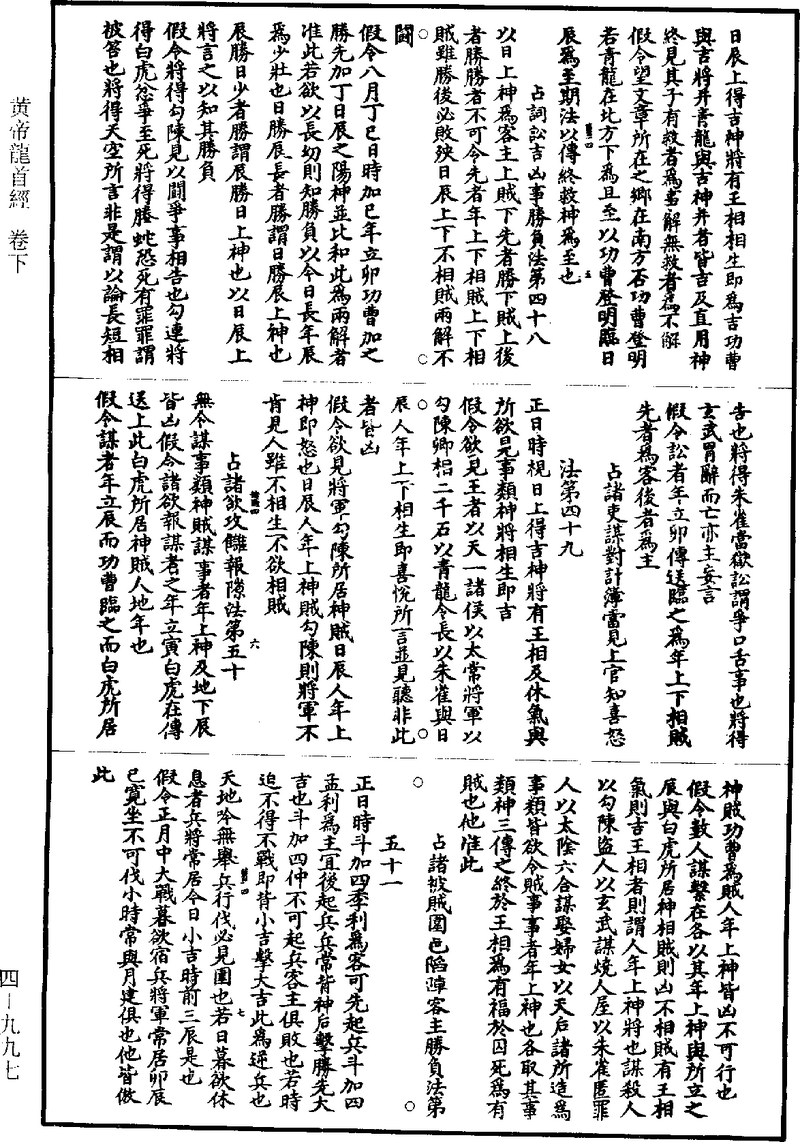 黃帝龍首經　卷下
日辰上得吉神將有王相相生即爲吉功曹
與吉將并青龍與吉神并者皆吉及直用神
終見其子有救者爲書解無救者爲不解
假令望文章所在之鄉在南方否功曹登明
若青龍在北方下爲且至以功曹登明臨日
辰爲至期法以傳終救神爲至也
占詞訟吉凶事勝負法第四十八
以日上神爲客主上賊下先者勝下賊上後
者勝勝者不可令先者年上下相賊上下相
賊雖勝後必敗殃日辰上下不相賊兩解不
鬪
假令八月丁巳日時加巳年立卯功曹加之
勝先加丁日辰之陽神並比和此爲兩解者
准此若欲以長幼則知勝負以今日長年辰
爲少壯也日勝辰長者勝謂日勝辰上神也
辰勝日少者勝謂辰勝日上神也以日辰上
將言之以知其勝負
假令將得勾陳見以鬪爭事相告也勾連將
得白虎忿爭至死將得螣蛇恐死有罪罪謂
被笞也將得天空所言非是謂以論長短相
告也將得朱雀當獄訟謂爭口舌事也將得
玄武胃辭而亡亦主妄言
假令訟者年立卯傳送臨之爲年上下相賊
先者爲客後者爲主
占諸吏謀對計簿當見上官知喜怒
法第四十九
正日時視日上得吉神將有王相及休氣與
所欲見事類神將相生即吉
假令欲見王者以天一諸侯以太常將軍以
勾陳卿相二千石以青龍令長以朱雀與日
辰人年上下相生即喜悅所言並見聽非此
者皆凶
假令欲見將軍勾陳所居神賊日辰人年上
神即怒也日辰人年上神賊勾陳則將軍不
肯見人雖不相生不欲相賊
占諸欲攻讎報隙法第五十
無令謀事類神賊謀事者年上神及地下辰
皆凶假令諸欲報謀者之年立寅白虎在傳
送上此白虎所居神賊人地年也
假令謀者年立辰而功曹臨之而白虎所居
神賊功曹爲賊人年上神皆凶不可行也
假令數人謀繫在各以其年上神與所立之
辰與白虎所居神相賊則凶不相賊有王相
氣則吉王相者則謂人年上神將也謀殺人
以勾陳盜人以玄武謀燒人屋以朱雀匿罪
人以太陰六合謀娶婦女以天后諸所造爲
事類皆欲令賊事事者年上神也各取其事
類神三傳之終於王相爲有福於囚死爲有
賊也他准此
占諸被賊圍邑陷陣客主勝負法第
五十一
正日時斗加四季利爲客可先起兵斗加四
孟利爲主宜後起兵兵常背神后擊勝先大
吉也斗加四仲不可起兵客主俱敗也若時
迫不得不戰即背小吉擊大吉此爲逆兵也
天地吟無舉兵行伐必見圍也若日暮欲休
息者兵將常居今日小吉時前三辰是也
假令正月中大戰暮欲宿兵將軍常居卯辰
巳寬坐不可伐小時常與月建俱也他皆倣
此
四－九九七